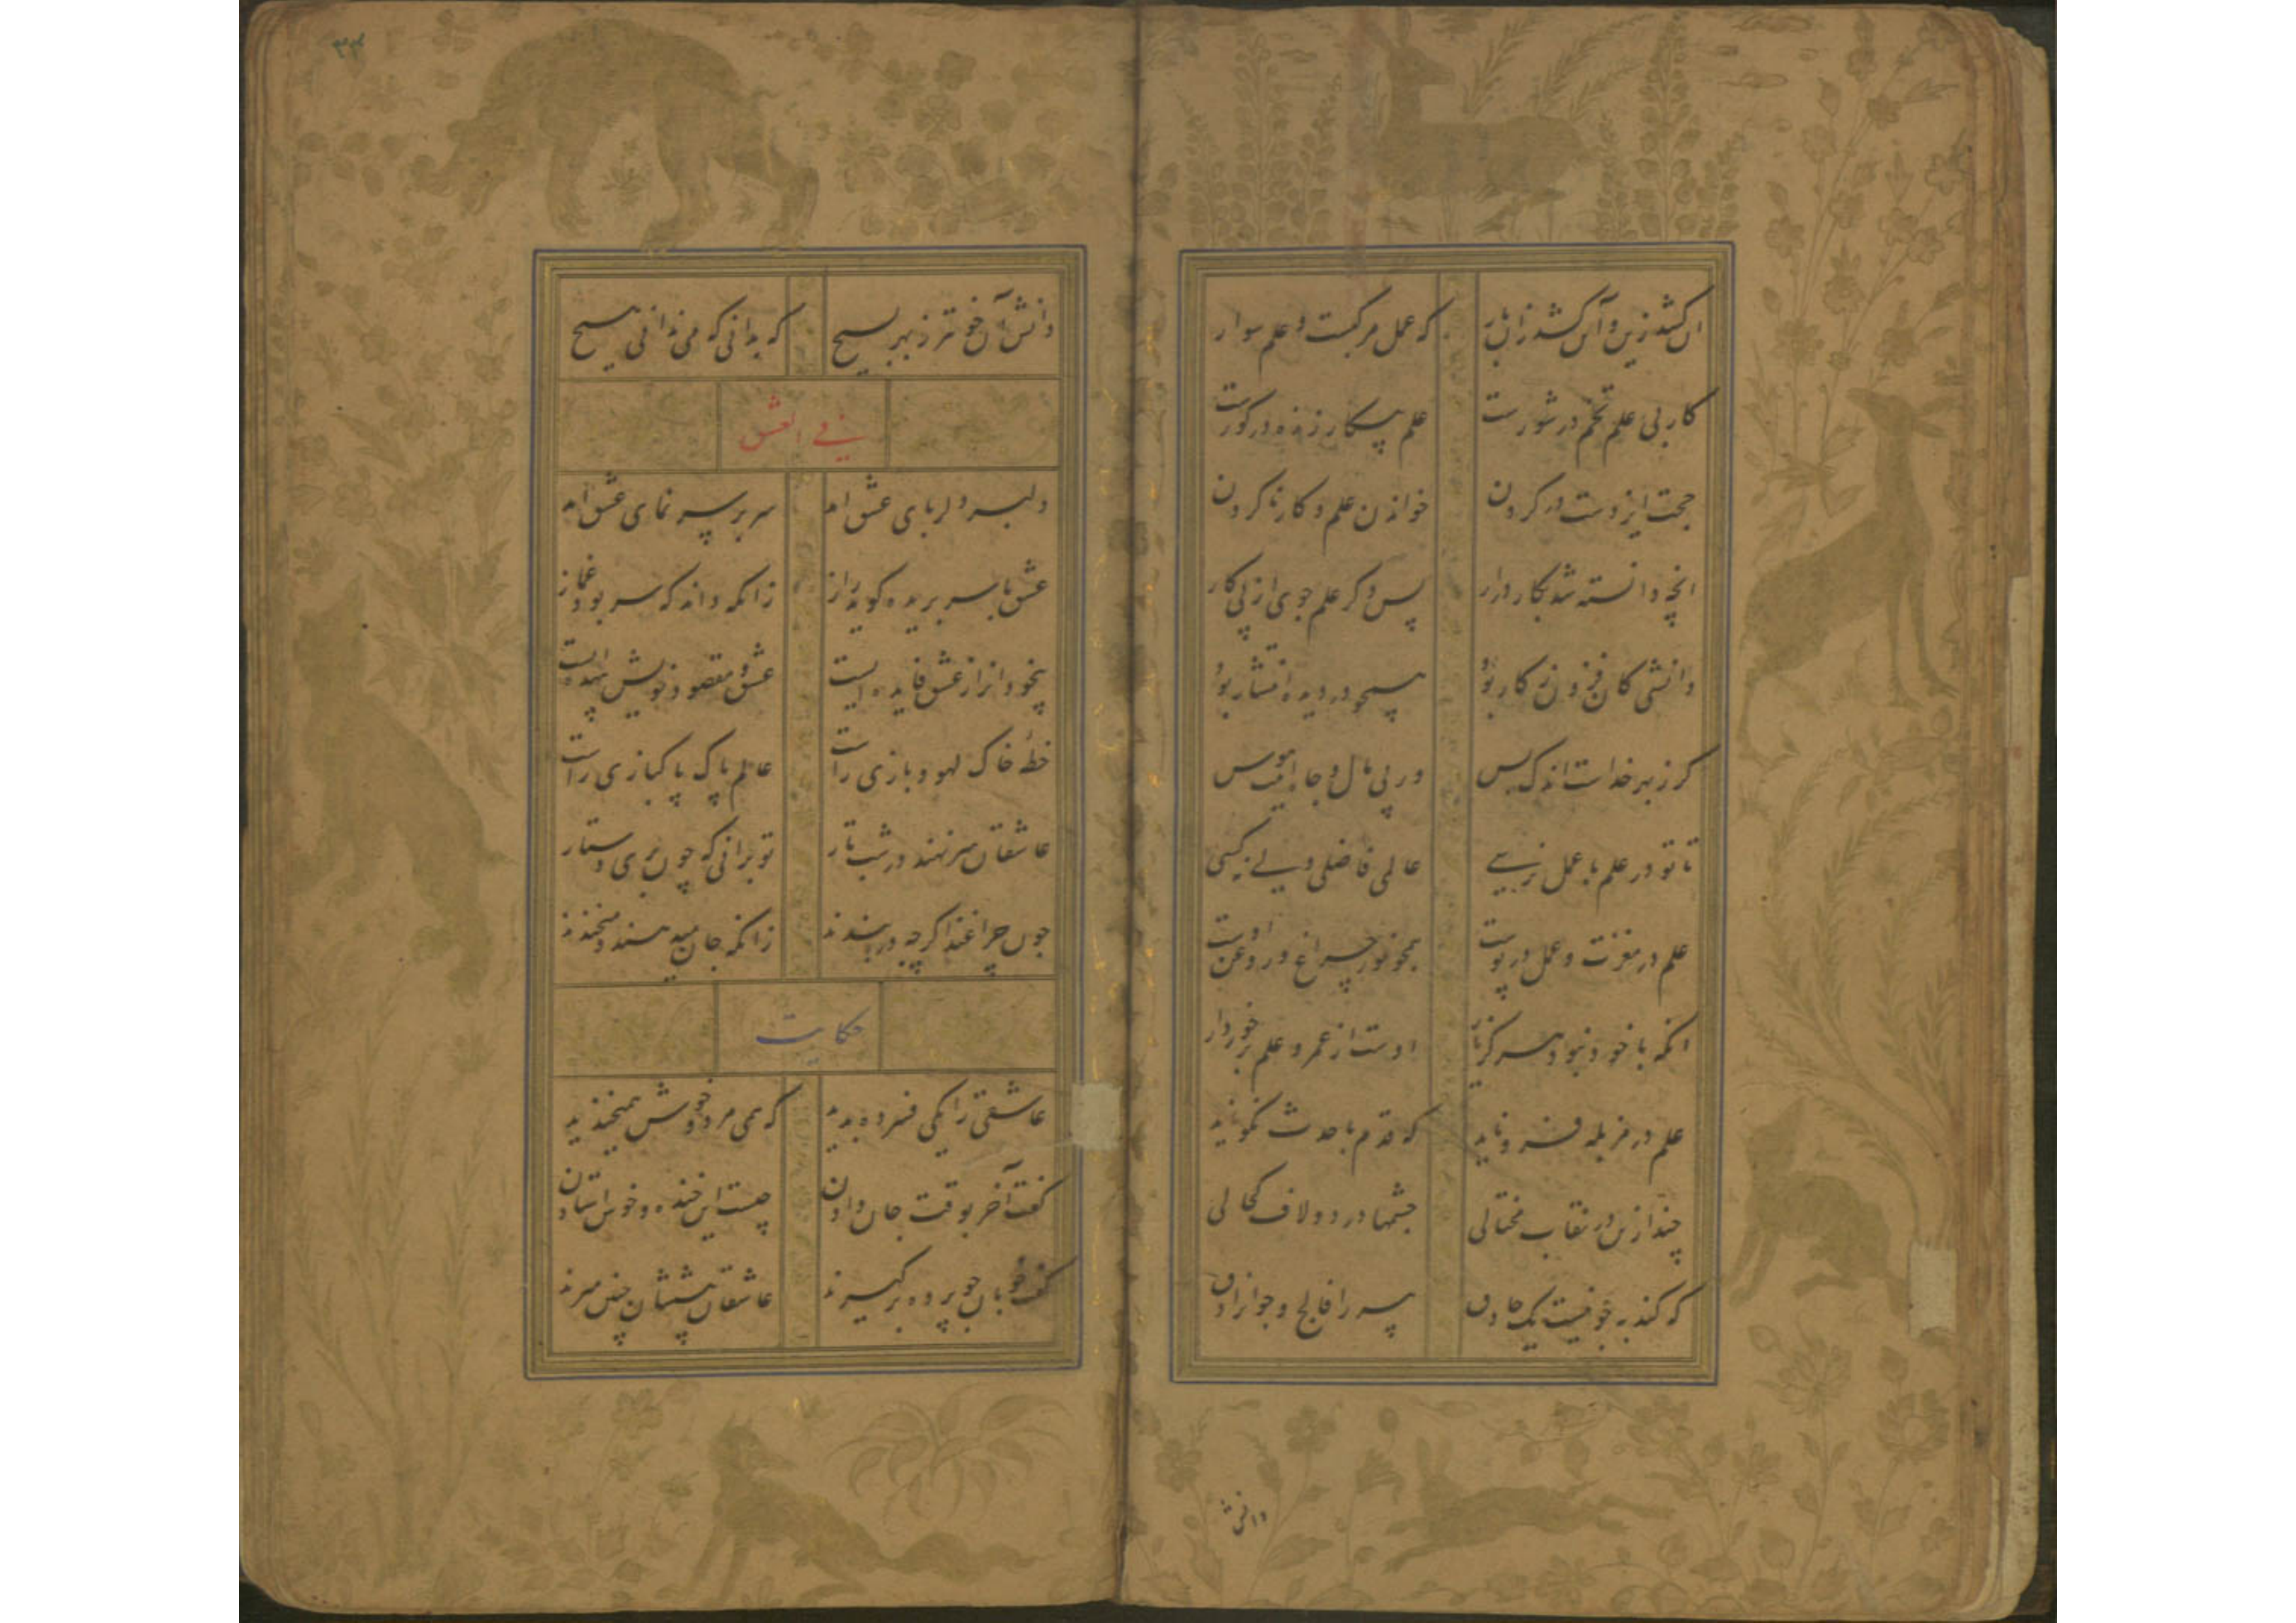 این کشد زین و آن کشد زان بار که عمل مرکبست و علم سوار
کار بی علم تخم در شورست علم بیکار زنده در کورست
حجت ایزدست در کردن خواندن علم و کار ناکردن
انچه دانسته شد بکار درار پس دکر علم جوی از پی کار
دانشی کان فزون ز کار بود همچو در دیده انتشار بود
کر ز بهر خداست اندک بس ور پی مال و جاه اینت هوس
تا تو در علم با عمل نرسی عالمی فاضلی ولی نه کسی
علم در مغزت و عمل در پوست همچو نور چراغ در روغن اوست
انکه با خود نبود سر کرنار اوست از عمر و علم برخوردار
علم در مزبله فرو ناید که قدم با حدث نکو ناید
چند ازین در نقاب محتالی چشمها درد و لاف کحالی
که کند به خوفیت یک حادق پیر را فالج و جوانرا دق
دانش
۳۳
دانش آن خوبتر ز بهر بسیج که بدانی که می ندانی هیچ
فی العشق
دلبر و دلربای عشق امد سر بر و سر نمای عشق امد
عشق با سر بریده کوید راز زانکه داند که سر بود غماز
بیخود انرا ز عشق فایده ایست عشق و مقصود خویش بیهده ایست
خطه خاک لهو و بازی راست عالم پاک پاکبازی راست
عاشقان سر نهند در شب تار تو برانی که چون بری دستار
چون چراغند اکرچه در بندند زانکه جان میدهند و میخندند
حکایت
عاشقی را یکی فسرده بدید که همی مرد و خوش همیخندید
کفت آخر بوقت جان دادن چیست این خنده و خوش استادن
کفت خوبان چو پرده برکیرند عاشقان پیششان چنین میرند